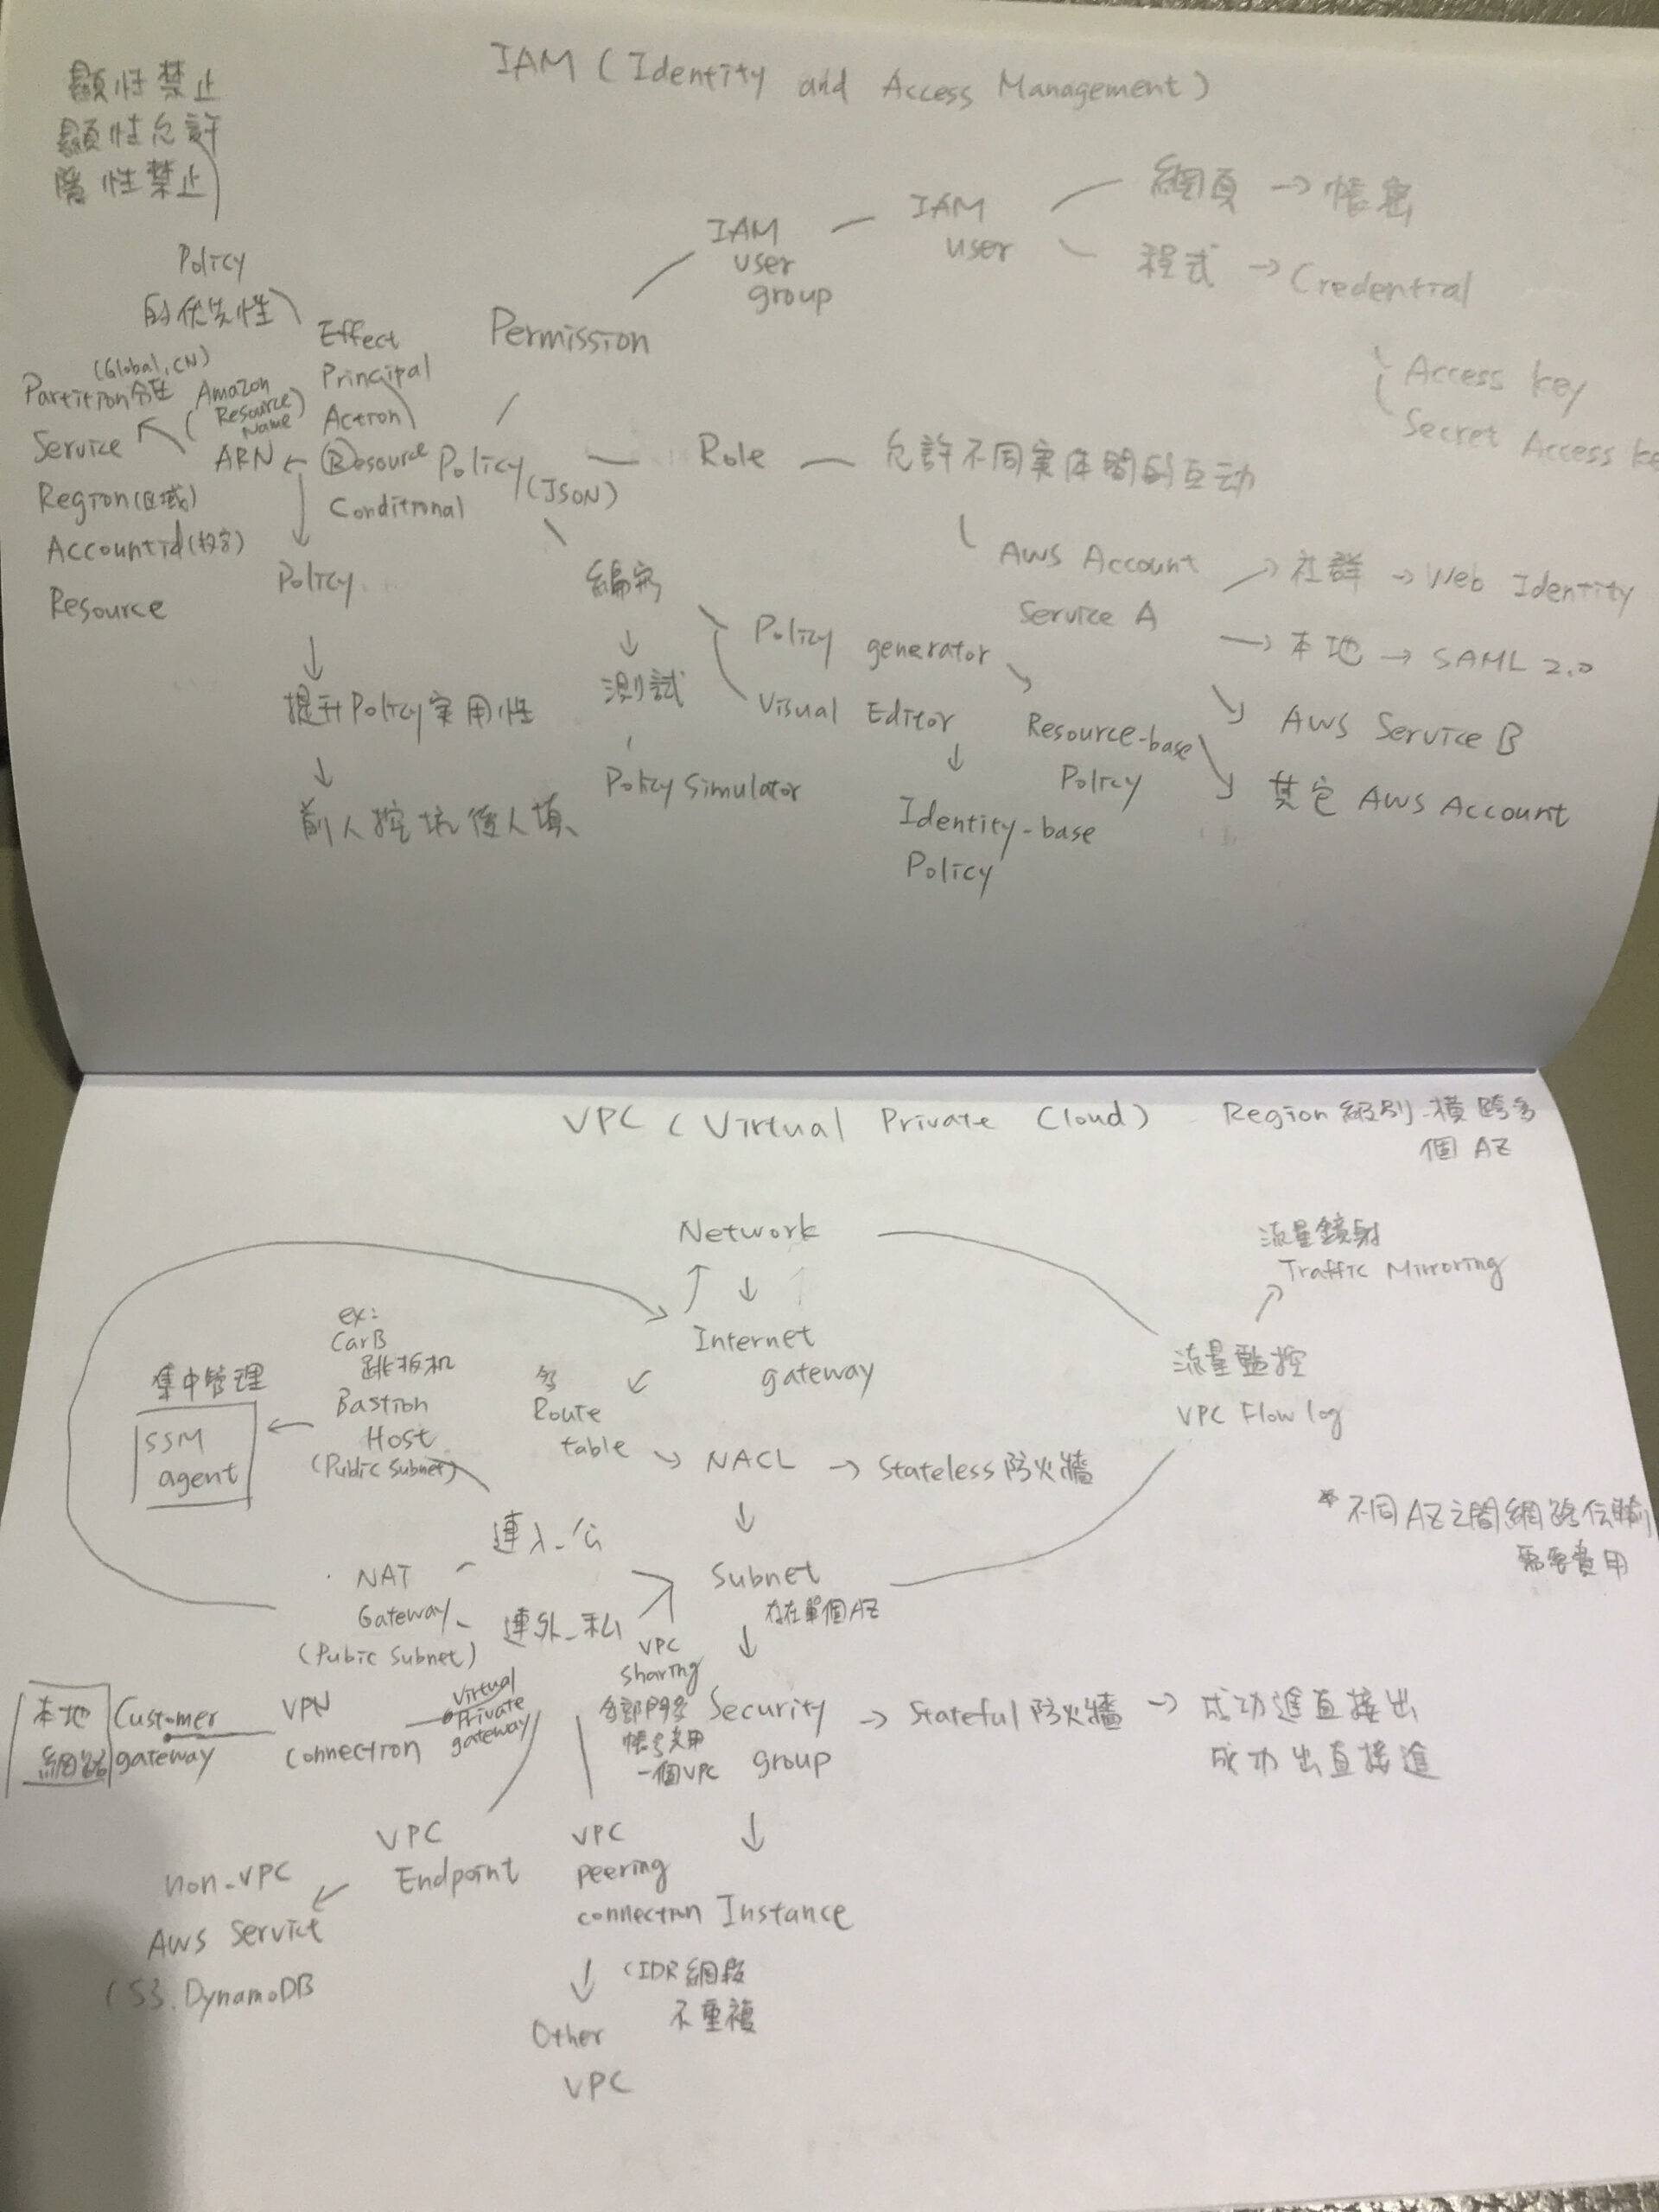 IAM (Identity and Access Management)
顯性禁止
顯性允許
隱性禁止
Policy
的优先性
IAM
user
group
IAM
user
網頁 → 帳密
程式 → Credential
Access key
Secret Access ke
Permission
Effect
Principal
Action
Resource
Conditional
(Global, CN)
Partition
Service
Region(区域)
Accountid
Resource
(Amazon
Resource
Name)
ARN
Policy
提升Policy実用性
前人挖坑後人填
Policy
(JSON)
編寫
測試
Policy Simulator
Policy generator
Visual Editor
Resource-base
Policy
Identity-base
Policy
Role
允許不同実体間的互动
AWS Account
Service A
社群 → Web Identity
本地 → SAML 2.0
AWS Service B
其它 AWS Account
VPC (Virtual Private Cloud) Region級別-橫跨多
個 AZ
Network
流量鏡射
Traffic Mirroring
Internet
gateway
流量監控
VPC Flow log
ex:
CarB
跳板机
Bastion
Host
(Public Subnet)
集中管理
SSM
agent
Route
table
NACL → Stateless防火牆
*不同AZ之間網路伝輸
需要費用
連入-公
連外-私
NAT
Gateway
(Pubic Subnet)
Subnet
存在單個AZ
VPC
sharing
各部門多
帳号共用
一個VPC
Security
group
→ Stateful防火牆 → 成功進直接出
成功出直接進
本地
網路
Customer
gateway
VPN
Connection
Virtual
Private
gateway
VPC
Endpoint
non-VPC
AWS Service
(S3. DynamoDB
VPC
peering
connection
Instance
CIDR網段
不重複
Other
VPC